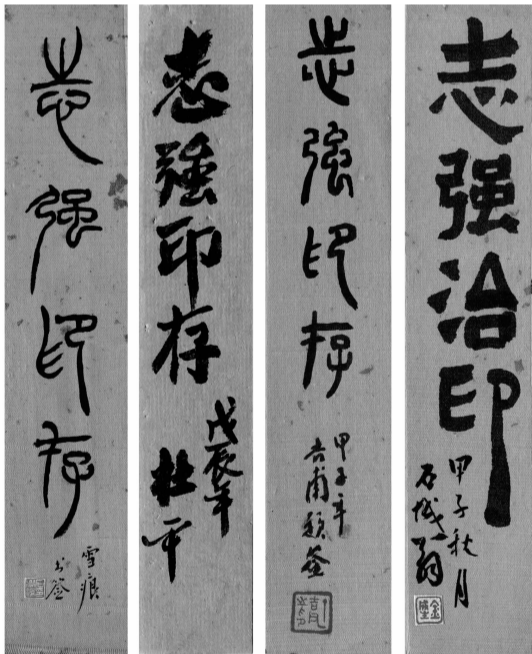 志强治印
甲子秋月
石城翁
志强印存
甲子年
吉甫题签
志强印存
戊辰年
杜平
志强印存
雪痕
书签